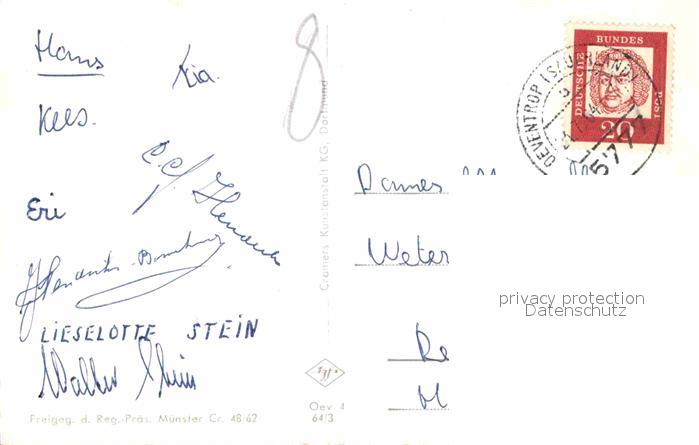 Hans
Kia.
Kees.
8
Eri
LIESELOTTE STEIN
Walter Stein
Freigeg. d. Reg.-Präs. Münster Cr. 48/62
Cramers Kunstanstalt KG, Dortmund
Oev 4
64/3
DEUTSCHE
BUNDES
POST
20
OEVENTROP (SAUERLAND)
5777
Dames
Weter
Re
H
privacy protection
Datenschutz